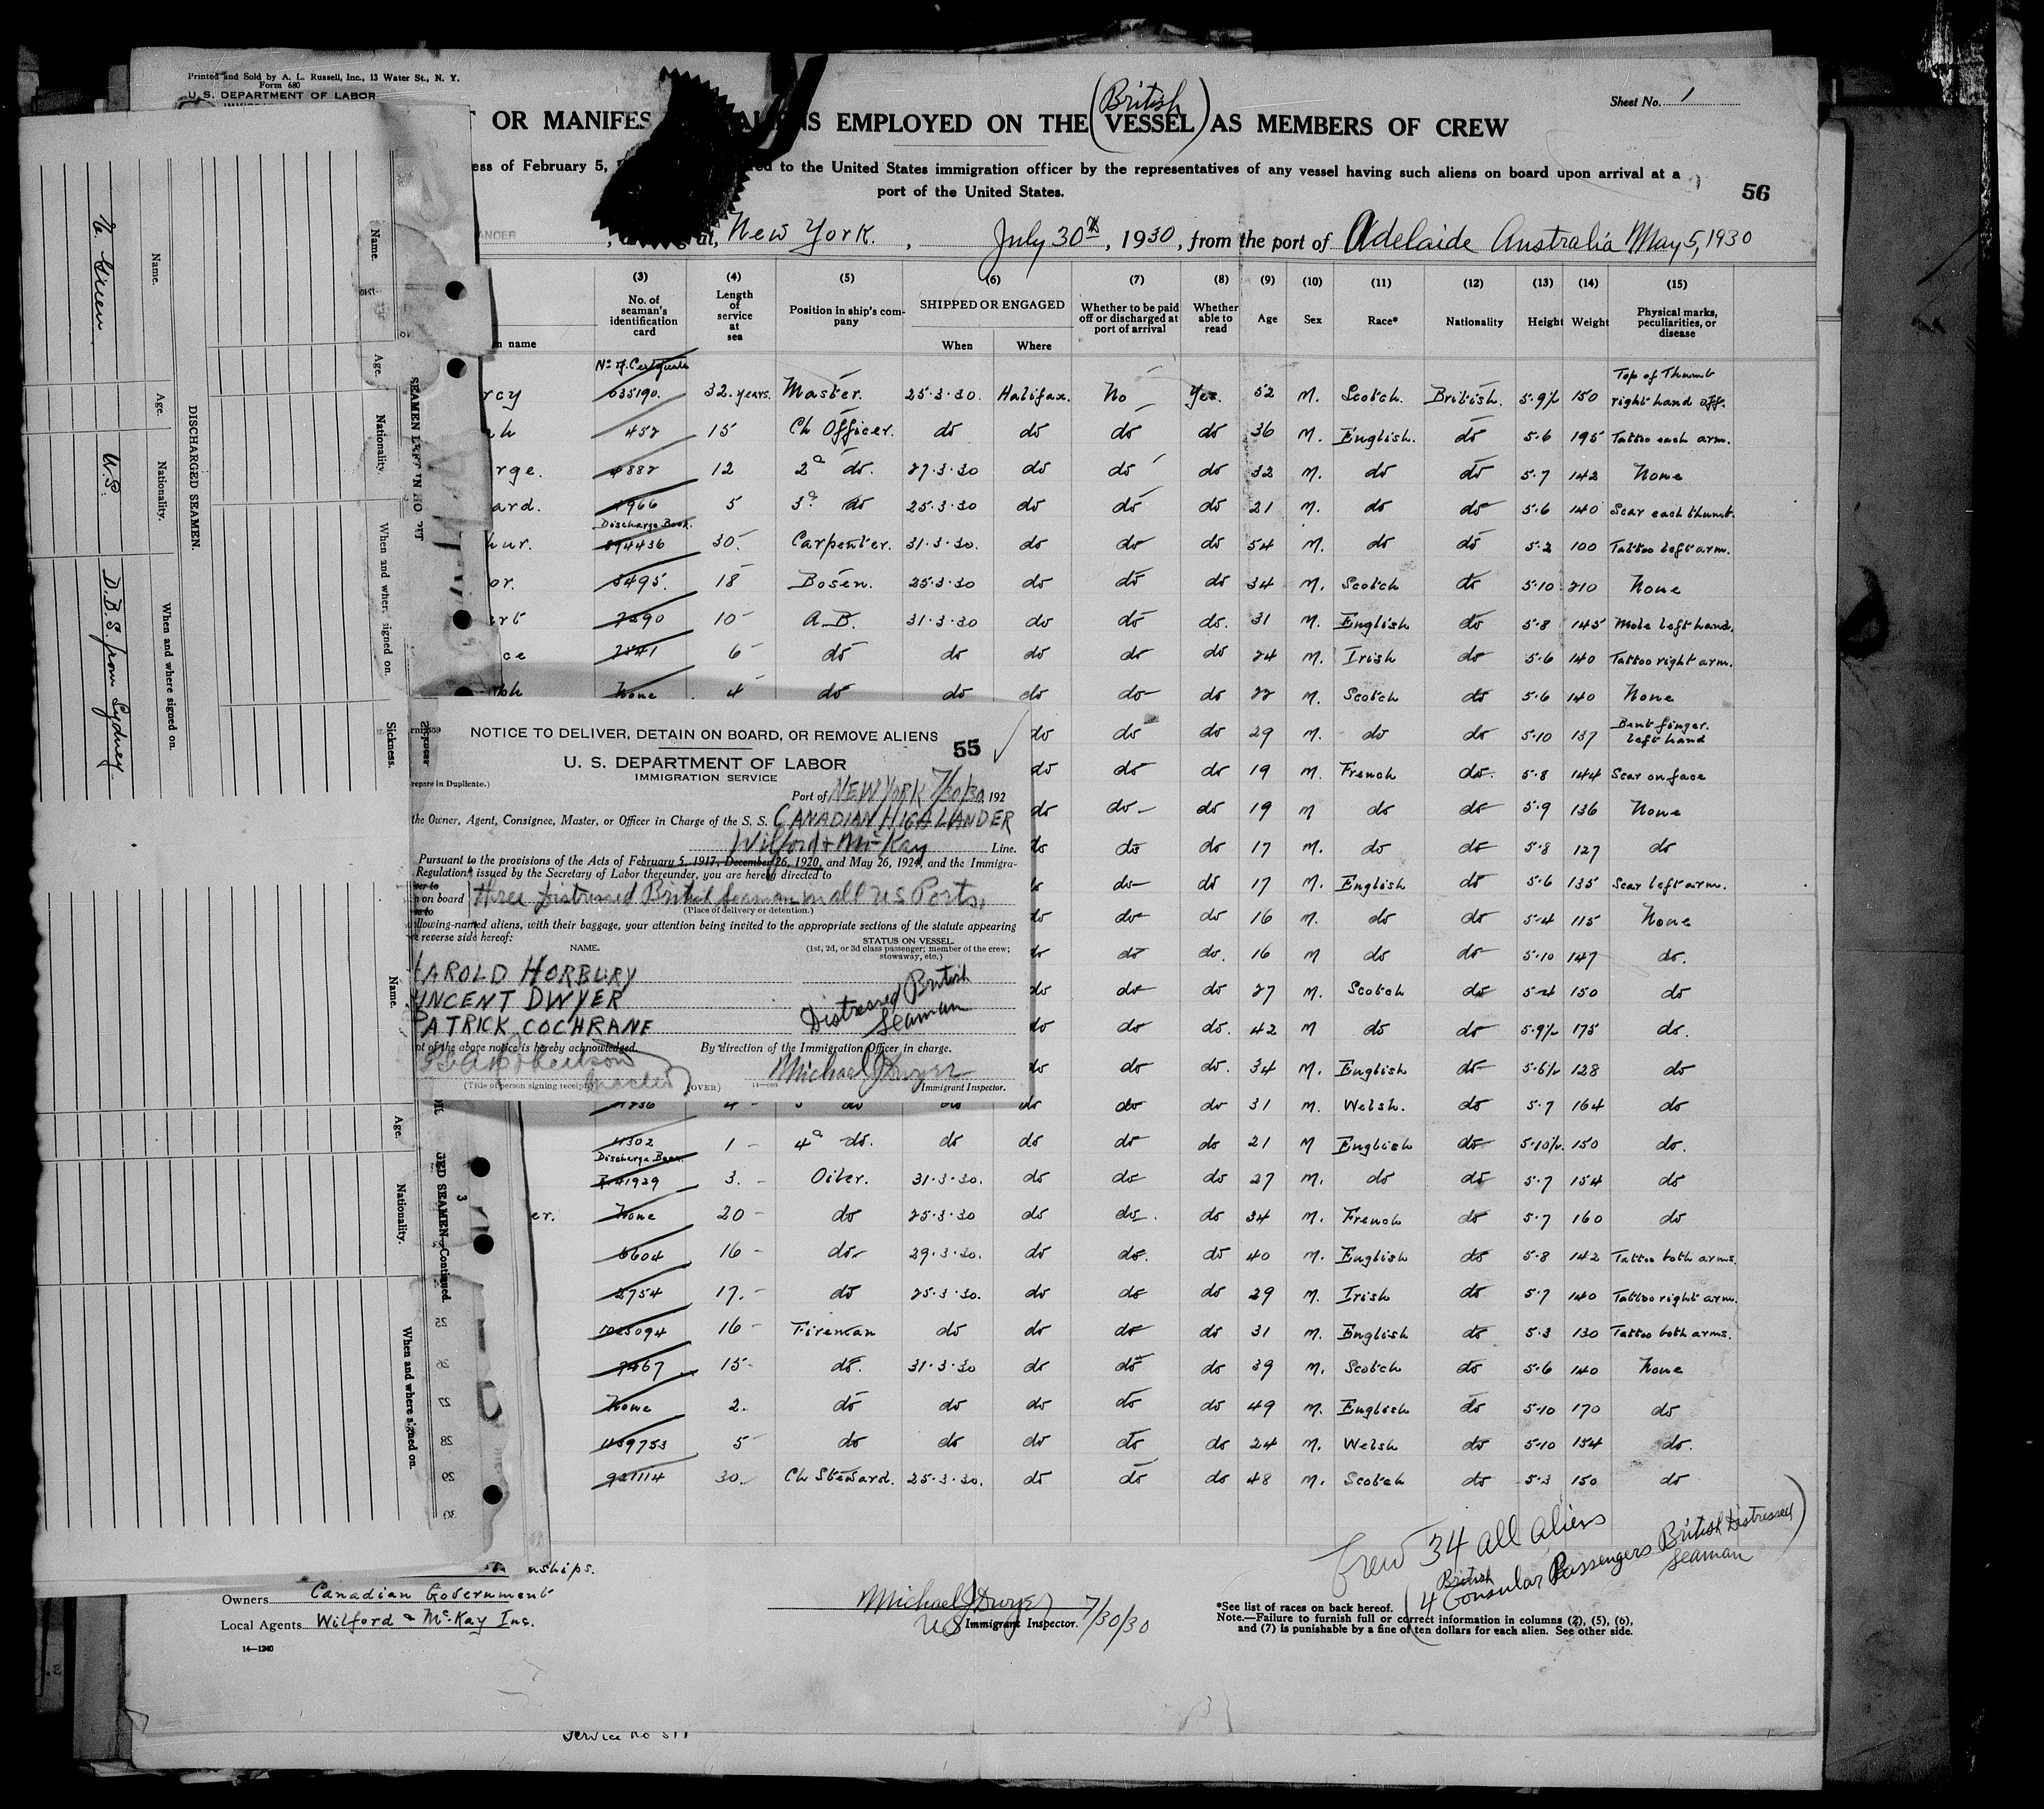 Printed and Sold by A. L. Russell, Inc., 13 Water St., N. Y.
Form 680
U. S. DEPARTMENT OF LABOR
Sheet No. 1
(British
OR MANIFES EMPLOYED ON THE VESSEL) AS MEMBERS OF CREW
ess of February 5, ed to the United States immigration officer by the representatives of any vessel having such aliens on board upon arrival at a
port of the United States.
56
New York. , July 30th, 1930, from the port of Adelaide Australia May 5, 1930
(3) (4) (5) (6) (7) (8) (9) (10) (11) (12) (13) (14) (15)
No. of seaman's identification card
Length of service at sea
Position in ship's company
SHIPPED OR ENGAGED
When Where
Whether to be paid off or discharged at port of arrival
Whether able to read
Age Sex Race* Nationality Height Weight
Physical marks, peculiarities, or disease
No of Certificate
rcy 635190. 32. years. Master. 25.3.30. Halifax. No Yes. 52 M. Scotch. British. 5.9½ 150 Top of Thumb right hand off.
452 15 Ch Officer. do do do do 36 M. English. do 5.6 195 Tattoo each arm.
rge. 4882 12 2d do. 27.3.30 do do do 32 M. do do 5.7 142 None
ard. 1966 5 3d do 25.3.30 do do do 21 M. do do 5.6 140 Scar each thumb.
Discharge Book.
hur. 894436 30. Carpenter. 31.3.30. do do do 54 M. do do 5.2 100 Tattoo left arm.
or. 5495. 18 Bosen. 25.3.30 do do do 34 M. Scotch do 5.10 210 None
ert 7290 10 A.B. 31.3.30 do do do. 31 M. English do 5.8 145 Mole left hand.
ce 2541 6 do do do do do 24 M. Irish do 5.6 140 Tattoo right arm.
None 4 do do do do do 22 M. Scotch do 5.6 140 None
do do do 29 M. do do 5.10 137 Bent finger. left hand
do do do 19 M. French do. 5.8 144 Scar on face
do do do 19 M do do 5.9 136 None
do do do 17 M. do do 5.8 127 do
do do 17 M. English do 5.6 135 Scar left arm.
do do do 16 M. do do 5.4 115 None
do do. 16 M do do 5.10 147 do.
do do do 27 M. Scotch do 5.4 150 do
do do do. 42 M do do 5.9½ 175 do.
do do do. 34 M. English do 5.6½ 128 do
1836 4 do do do do do 31 M. Welsh. do 5.7 164 do
4302 1 4d do. do do do do 21 M English do 5.10½. 150 do.
Discharge Book.
R41929 3. Oiler. 31.3.30. do do do 27 M. do do 5.7 154 do
er. None 20 do 25.3.30 do do. do 34 M. French do 5.7 160 do
6604 16 do 29.3.30. do do. do 40 M. English do 5.8 142 Tattoo both arms.
2754 17. do 25.3.30. do do do 29 M. Irish do 5.7 140 Tattoo right arm.
1025094 16 Fireman do do do do 31 M. English do 5.3 130 Tattoo both arms.
7467 15 do. 31.3.30 do do do 39 M. Scotch do 5.6 140 None
None 2. do do do do do 49 M. English do 5.10 170 do
1159753 5 do do do do do 24 M. Welsh do 5.10 154 do.
921114 30. Ch Steward. 25.3.30. do do do 48 M. Scotch do 5.3 150 do
Crew 34 all aliens
(4 British Consular Passengers British Distressed Seaman)
Owners Canadian Government
nships.
Local Agents Wilford & McKay Inc.
14—1240
Michael J Dwyer 7/30/30
US Immigrant Inspector.
*See list of races on back hereof.
Note.—Failure to furnish full or correct information in columns (2), (5), (6),
and (7) is punishable by a fine of ten dollars for each alien. See other side.
NOTICE TO DELIVER, DETAIN ON BOARD, OR REMOVE ALIENS
55
U. S. DEPARTMENT OF LABOR
IMMIGRATION SERVICE
repare in Duplicate.)
Port of NEW YORK 7/30/30, 192
the Owner, Agent, Consignee, Master, or Officer in Charge of the S. S. CANADIAN HIGHLANDER
Wilford & McKay Line.
Pursuant to the provisions of the Acts of February 5, 1917, December 26, 1920, and May 26, 1924, and the Immigra-
Regulations issued by the Secretary of Labor thereunder, you are hereby directed to
on board three Distressed British Seaman in all US Ports,
(Place of delivery or detention.)
llowing-named aliens, with their baggage, your attention being invited to the appropriate sections of the statute appearing
reverse side hereof:
NAME. STATUS ON VESSEL.
(1st, 2d, or 3d class passenger; member of the crew; stowaway, etc.)
HAROLD HORBURY
VINCENT DWYER
PATRICK COCHRANE
Distressed British Seaman
of the above notice is hereby acknowledged. By direction of the Immigration Officer in charge.
Robertson Master
Michael J Dwyer
(Title of person signing receipt) (OVER) Immigrant Inspector.
DISCHARGED SEAMEN.
Name. Age. Nationality. When and where signed on.
Green U.S. D.B.S. from Sydney
Name. Age. Nationality. When and where signed on. Sickness.
SEAMEN LEFT IN HO
Name. Age. Nationality. When and where signed on.
GED SEAMEN—Continued.
3
25
26
27
28
29
30